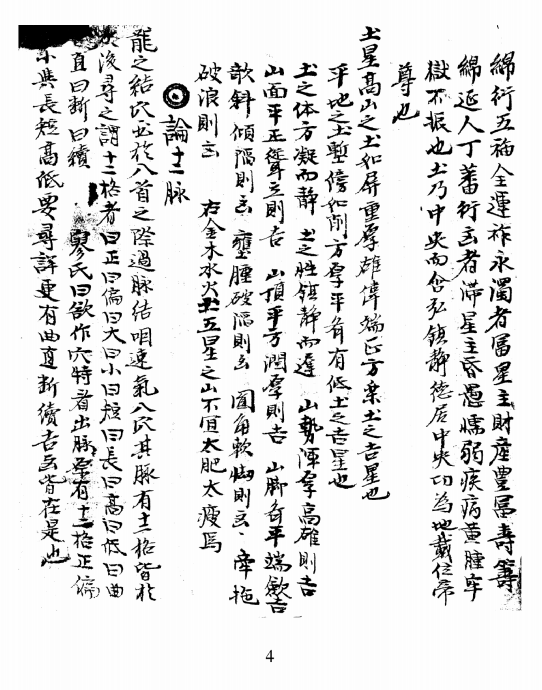 綿衍五福全運祚永濁者富星主財產豊冨壽筭
綿延人丁蕃衍玄者滞星主昏愚懦弱疾病黄腫牢
獄不振也土乃中央而含弘鎮静德居中央功為地載位帝
尊也
土星高山之土如屏重厚雄偉端正方棄土之吉星也
平地之土塹傍如削方厚平有低土之吉星也
土之体方凝而静 土之性鎮静而遲 山勢渾厚高雄則吉
山面平正聳立則吉 山頂平方濶厚則吉 山脚平端歛吉
欹斜傾陷則玄 壅腫破陷則玄 圓角軟則玄 牽拖
破浪則玄 右金木水火土五星之山不宜太肥太瘦焉
論十二脉
龍之結穴出於八首之際過脉結咽速氣入穴其脉有十二格皆於
後尋之謂十二格者曰正曰偏曰大曰小曰短曰長曰高曰低曰曲
直曰断曰續 廖氏曰欲作穴特看出脉有十二格正偏
小與長短高低要尋詳更有曲直断續吉玄皆在是也
4